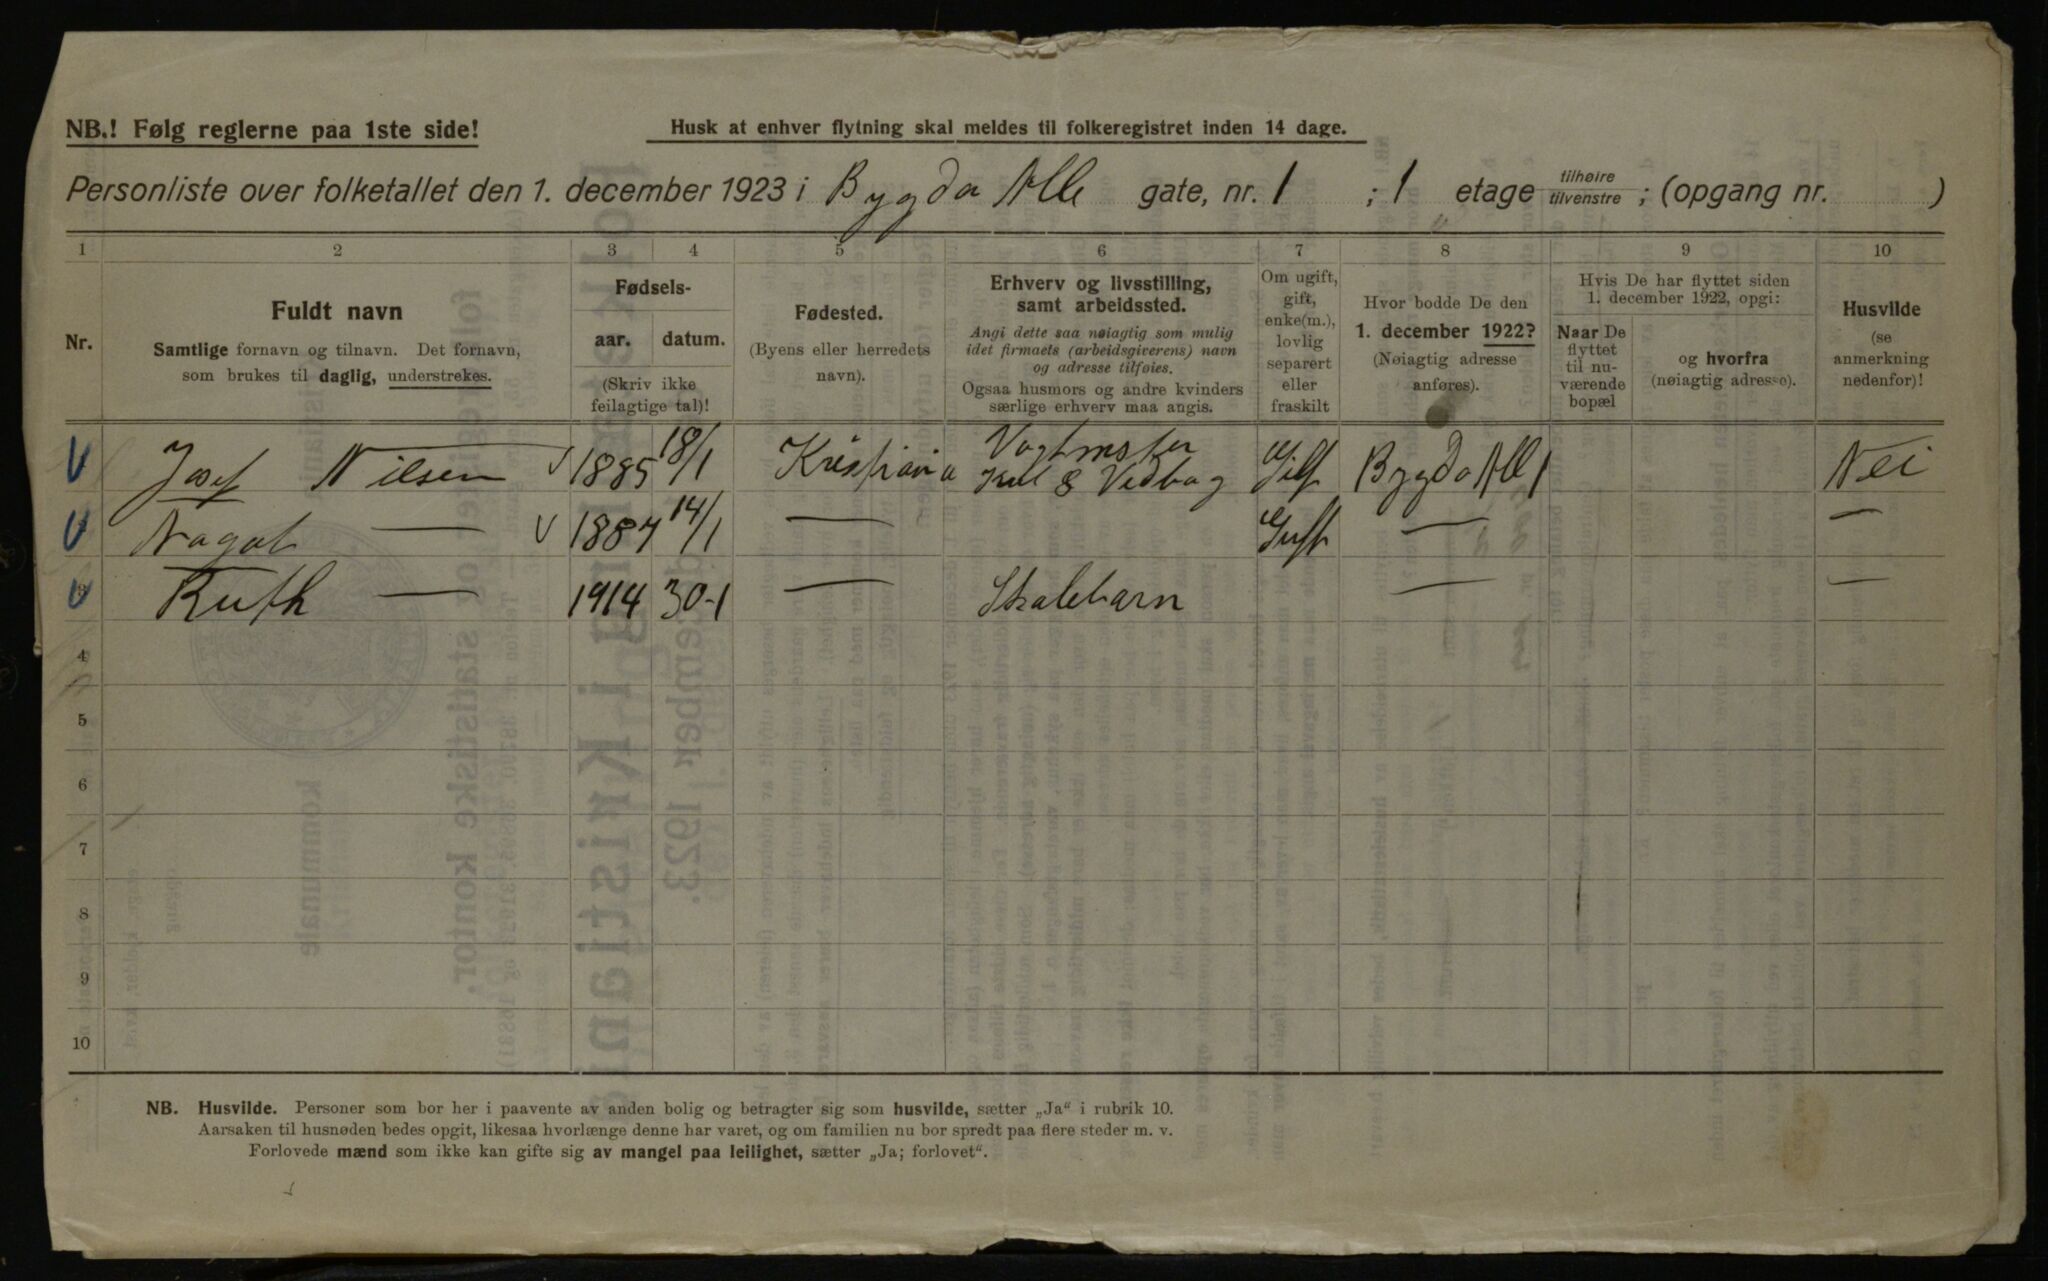 NB.! Følg reglerne paa 1ste side!
Husk at enhver flytning skal meldes til folkeregistret inden 14 dage.
Personliste over folketallet den 1. december 1923 i Bygdø Alle gate, nr. 1 ; 1 etage tilhøire tilvenstre ; (opgang nr. )
1 2 3 4 5 6 7 8 9 10
Nr.
Fuldt navn
Samtlige fornavn og tilnavn. Det fornavn,
som brukes til daglig, understrekes.
Fødsels-
aar. datum.
(Skriv ikke
feilagtige tal)!
Fødested.
(Byens eller herredets
navn).
Erhverv og livsstilling,
samt arbeidssted.
Angi dette saa nøiagtig som mulig
idet firmaets (arbeidsgiverens) navn
og adresse tilføies.
Ogsaa husmors og andre kvinders
særlige erhverv maa angis.
Om ugift,
gift,
enke(m.),
lovlig
separert
eller
fraskilt
Hvor bodde De den
1. december 1922?
(Nøiagtig adresse
anføres).
Hvis De har flyttet siden
1. december 1922, opgi:
Naar De
flyttet
til nu-
værende
bopæl
og hvorfra
(nøiagtig adresse).
Husvilde
(se
anmerkning
nedenfor)!
Josef Nilsen 1885 18/1 Kristiania Vogtmster Kul & Vedbag Gift Bygdø Alle 1 Nei
— 1887 14/1 — Gift — —
Ruth — 1914 30-1 — Skolebarn — —
4
5
6
7
8
9
10
NB. Husvilde. Personer som bor her i paavente av anden bolig og betragter sig som husvilde, sætter „Ja“ i rubrik 10.
Aarsaken til husnøden bedes opgit, likesaa hvorlænge denne har varet, og om familien nu bor spredt paa flere steder m. v.
Forlovede mænd som ikke kan gifte sig av mangel paa leilighet, sætter „Ja; forlovet“.